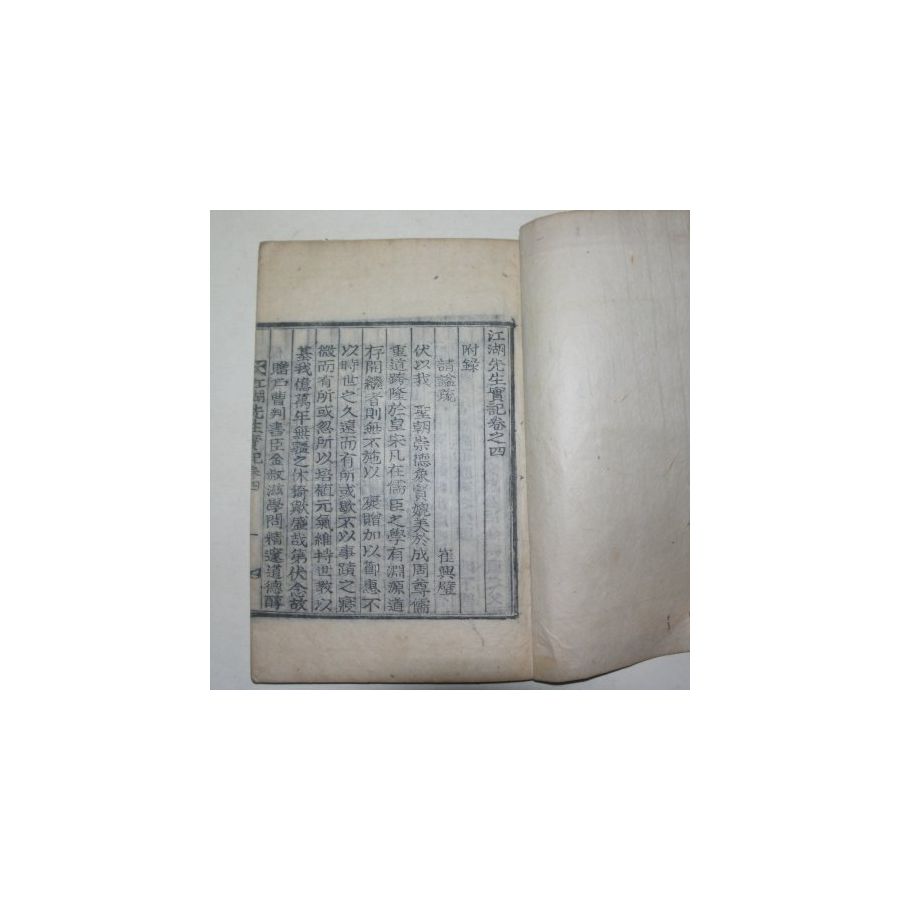 江湖先生實記卷之四
附録
請諡疏 崔興璧
伏以我 聖朝崇德象賢媲美於成周尊儒
重道跨隆於皇宋凡在儒臣之學有淵源道
存開繼者則無不施以 褒贈加以節惠不
以時世之久遠而有所或歇不以事蹟之寢
微而有所或忽所以培植元氣維持世敎以
基我億萬年無疆之休猗歟盛哉第伏念故
贈戶曹判書臣金叔滋學問精邃道德醇
江湖先生實記卷四 一